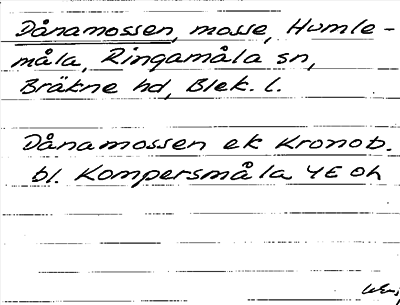 Dånamossen, mosse, Humle-
måla, Ringamåla sn,
Bräkne hd, Blek. l.
Dånamossen ek Kronob.
bl. Kompersmåla 4E oh